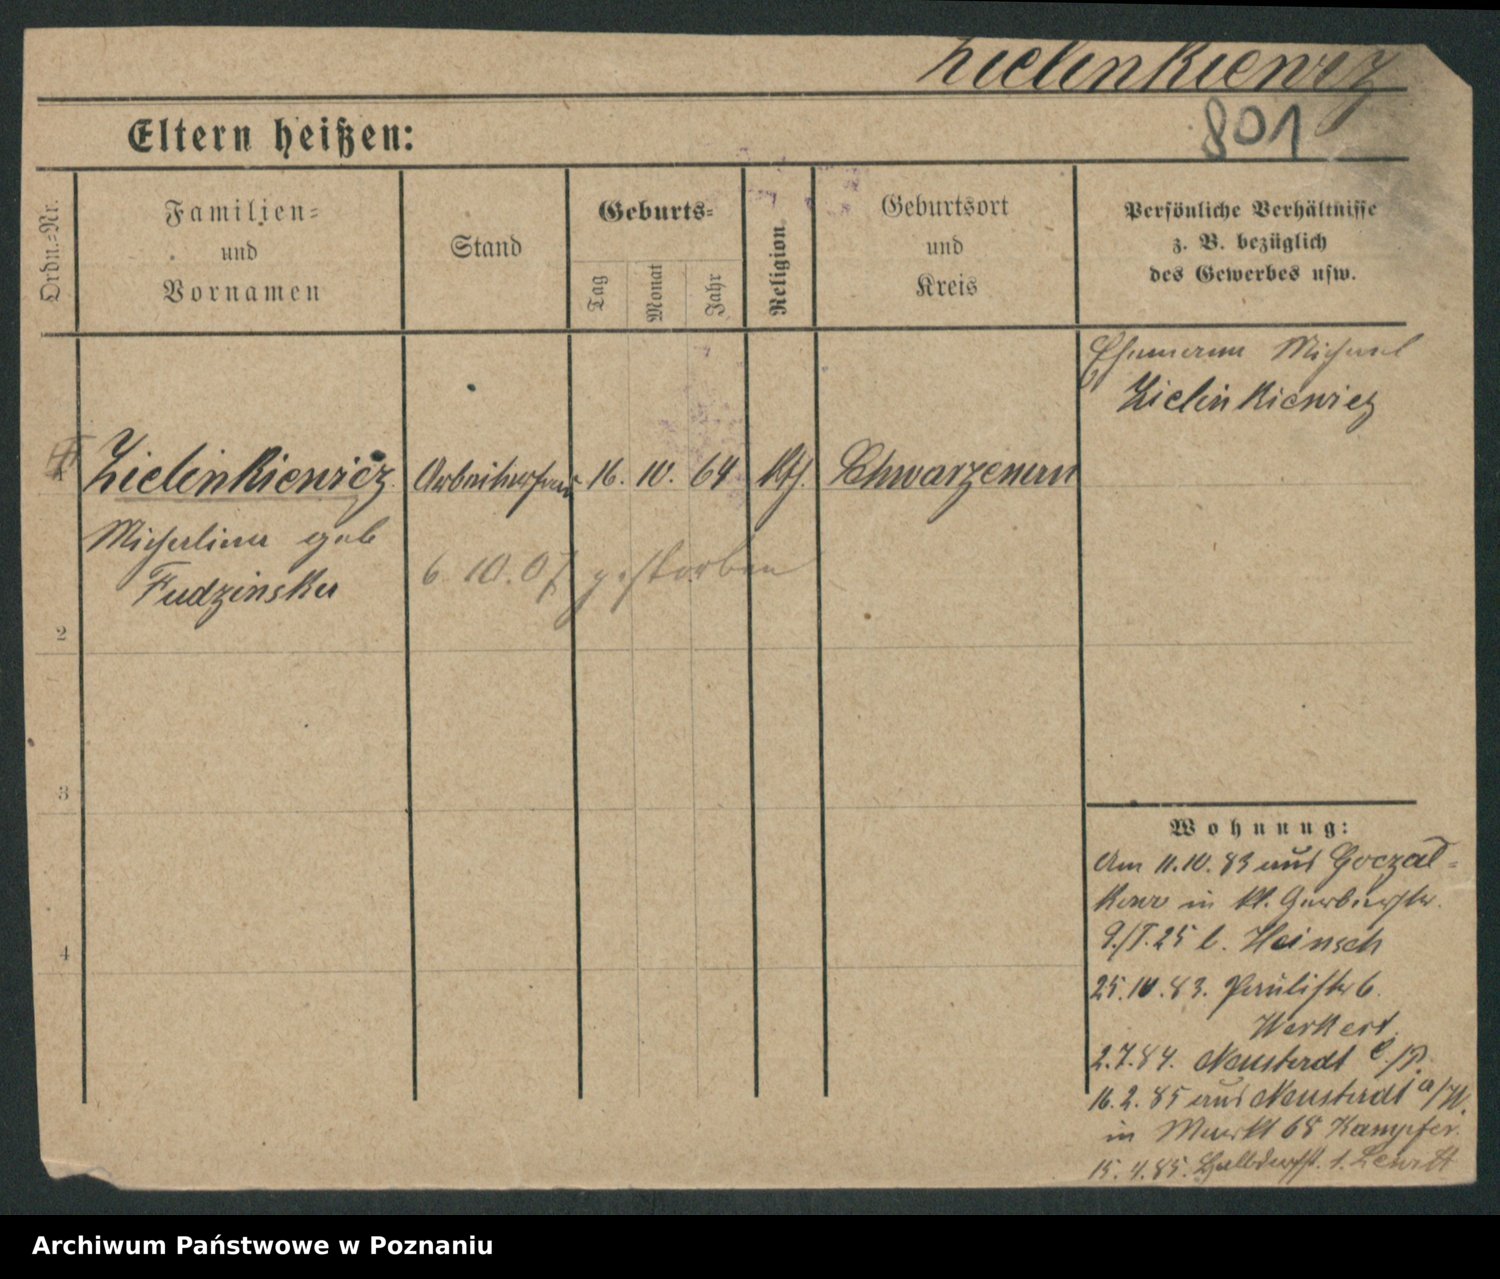 Zielinkiewicz
801
Eltern heißen:
Ordn.-Nr.
Familien-
und
Vornamen
Stand
Geburts-
Tag
Monat
Jahr
Religion
Geburtsort
und
Kreis
Persönliche Verhältnisse
z. B. bezüglich
des Gewerbes usw.
Ehemann Michael
Zielinkiewicz
1
Zielinkiewicz
Arbeiterfrau
16. 10. 64
Kth.
Schwarzenau
Michalina geb
Fudzinska
6. 10. 07 gestorben
2
3
4
Wohnung:
Am 11.10.83 aus Goczal-
kowo in Kl. Gerberstr.
9./T. 25 b. Heinsch
25.10.83. Paulistr 6.
Werkert,
2.7.84. Neustadt a/W.
16.2.85 aus Neustadt a/W.
in Markt 68 Kampfer.
15.4.85. Halbdorfst. 1.
Archiwum Państwowe w Poznaniu